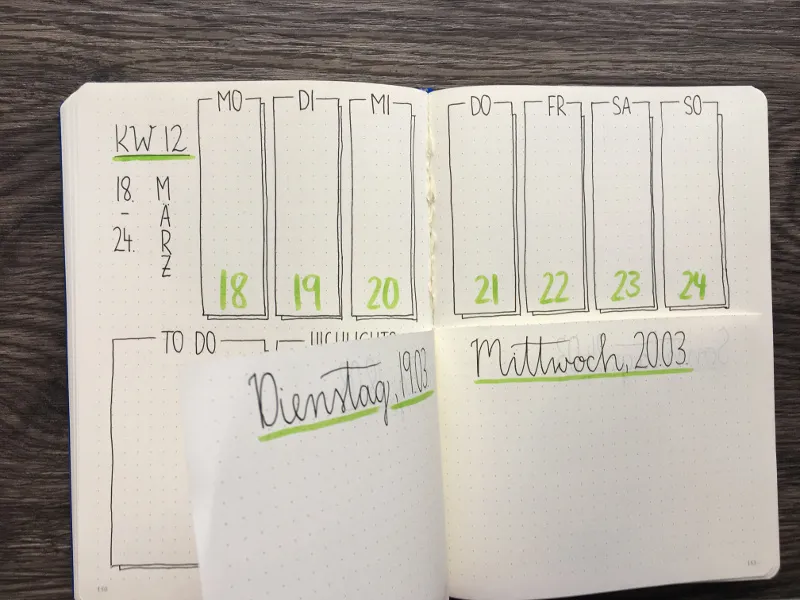 MO DI MI DO FR SA SO
KW 12
18. M
- Ä
24. R
Z
18 19 20 21 22 23 24
TO DO HIGHLIGHTS
Dienstag, 19.03
Mittwoch, 20.03.